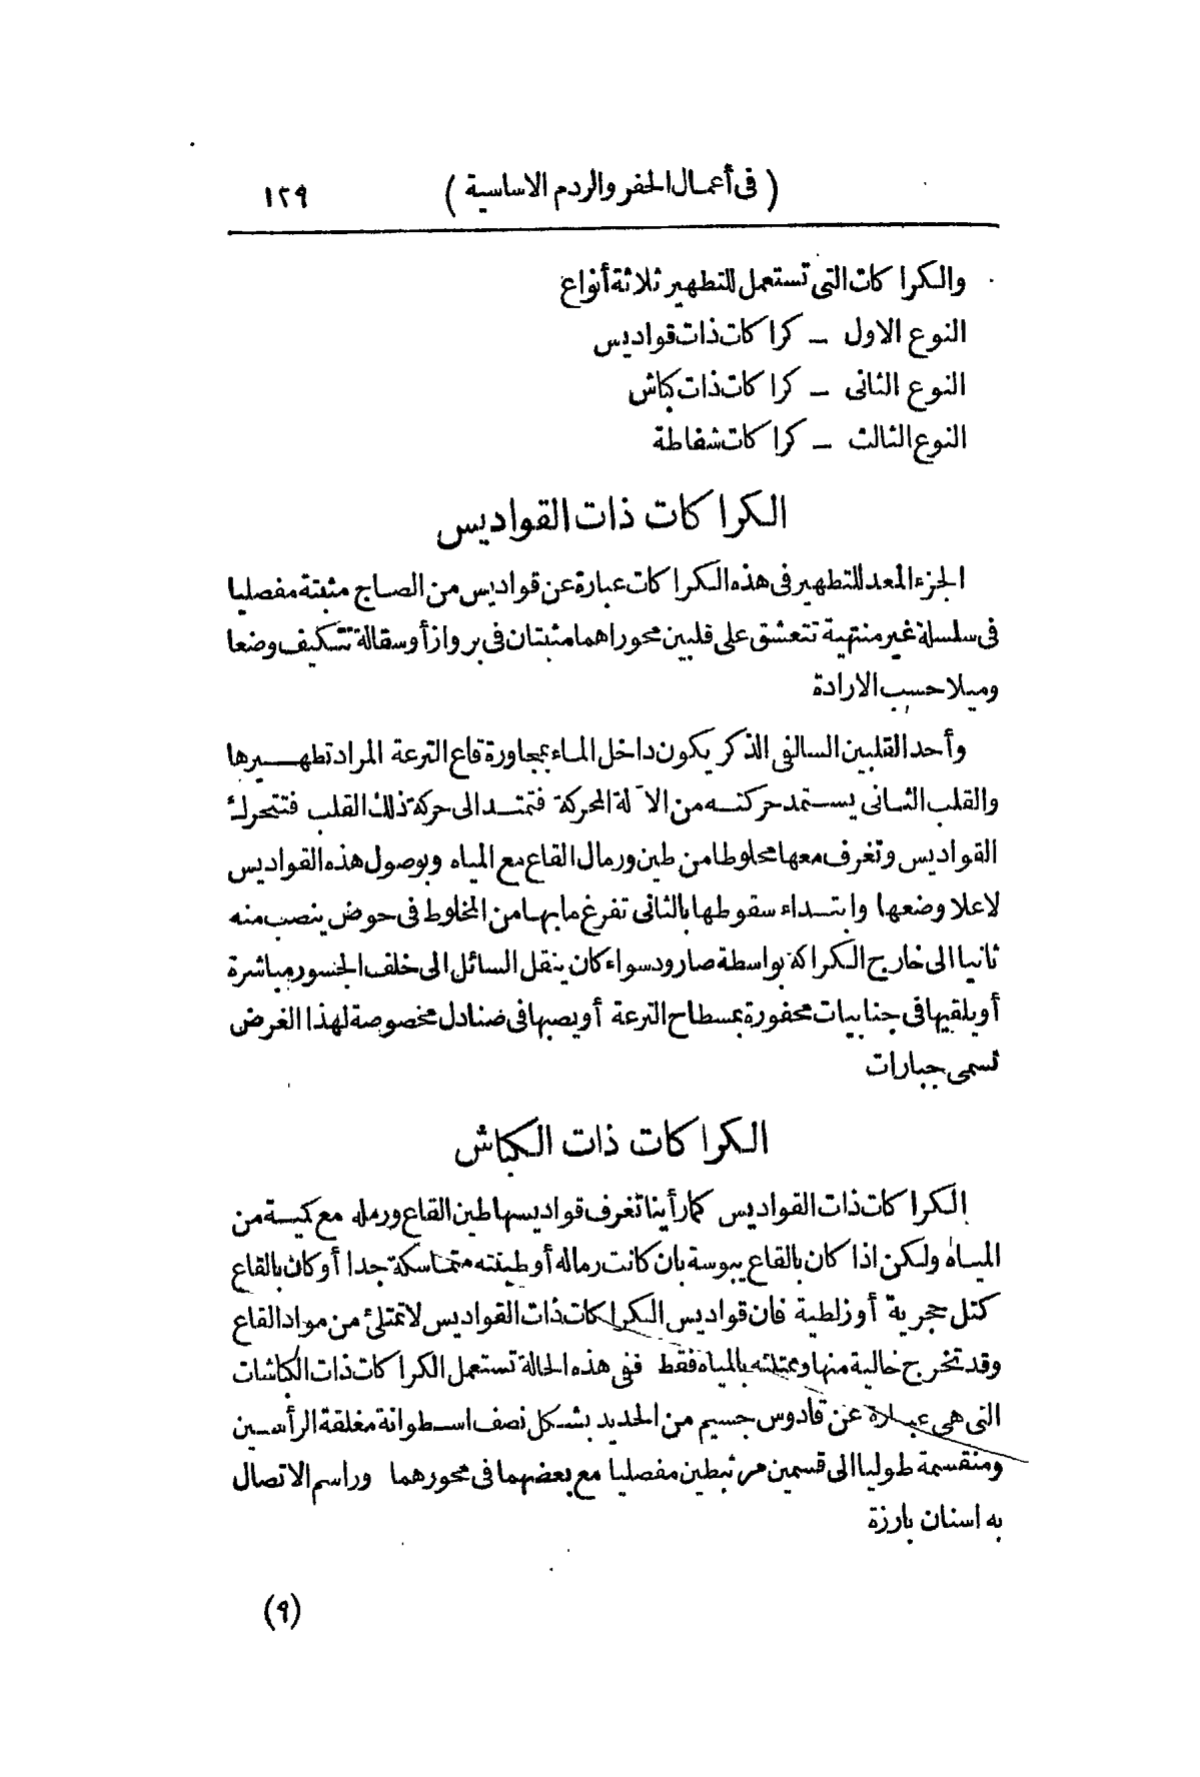 (فى أعمال الحفر والردم الاساسية) ١٢٩
والكراكات التى تستعمل للتطهير ثلاثة أنواع
النوع الاول — كراكات ذات قواديس
النوع الثانى — كراكات ذات كباش
النوع الثالث — كراكات شفاطة
الكراكات ذات القواديس
الجزء المعد للتطهير فى هذه الكراكات عبارة عن قواديس من الصاج مثبتة مفصليا
فى سلسلة غير منتهية تتعشق على قلبين محوراهما مثبتان فى برواز أو سقالة تتكيف وضعا
وميلا حسب الارادة
وأحد القلبين السالفى الذكر يكون داخل الماء بمجاورة قاع الترعة المراد تطهيرها
والقلب الثانى يستمد حركته من الآلة المحركة فتمتد الى حركة ذلك القلب فتتحرك
القواديس وتغرف معها مخلوطا من طين ورمال القاع مع المياه وبوصول هذه القواديس
لاعلا وضعها وابتداء سقوطها بالثانى تفرغ ما بها من المخلوط فى حوض ينصب منه
ثانيا الى خارج الكراكة بواسطة صارود سواء كان ينقل السائل الى خلف الجسور مباشرة
أو يلقيها فى جنابيات محفورة بمسطاح الترعة أو يصبها فى صنادل مخصوصة لهذا الغرض
تسمى جبارات
الكراكات ذات الكباش
الكراكات ذات القواديس كما رأينا تغرف قواديسها طين القاع ورمله مع كمية من
المياه ولكن اذا كان بالقاع يبوسة بان كانت رماله أو طينته متماسكة جدا أو كان بالقاع
كتل حجرية أو زلطية فان قواديس الكراكات ذات القواديس لا تمتلئ من مواد القاع
وقد تخرج خالية منها وممتلئه بالمياه فقط ففى هذه الحالة تستعمل الكراكات ذات الكباشات
التى هى عبارة عن قادوس جسيم من الحديد بشكل نصف اسطوانة مغلقة الرأسين
ومنقسمة طوليا الى قسمين مرتبطين مفصليا مع بعضهما فى محورهما وراسم الاتصال
به اسنان بارزة
(٩)